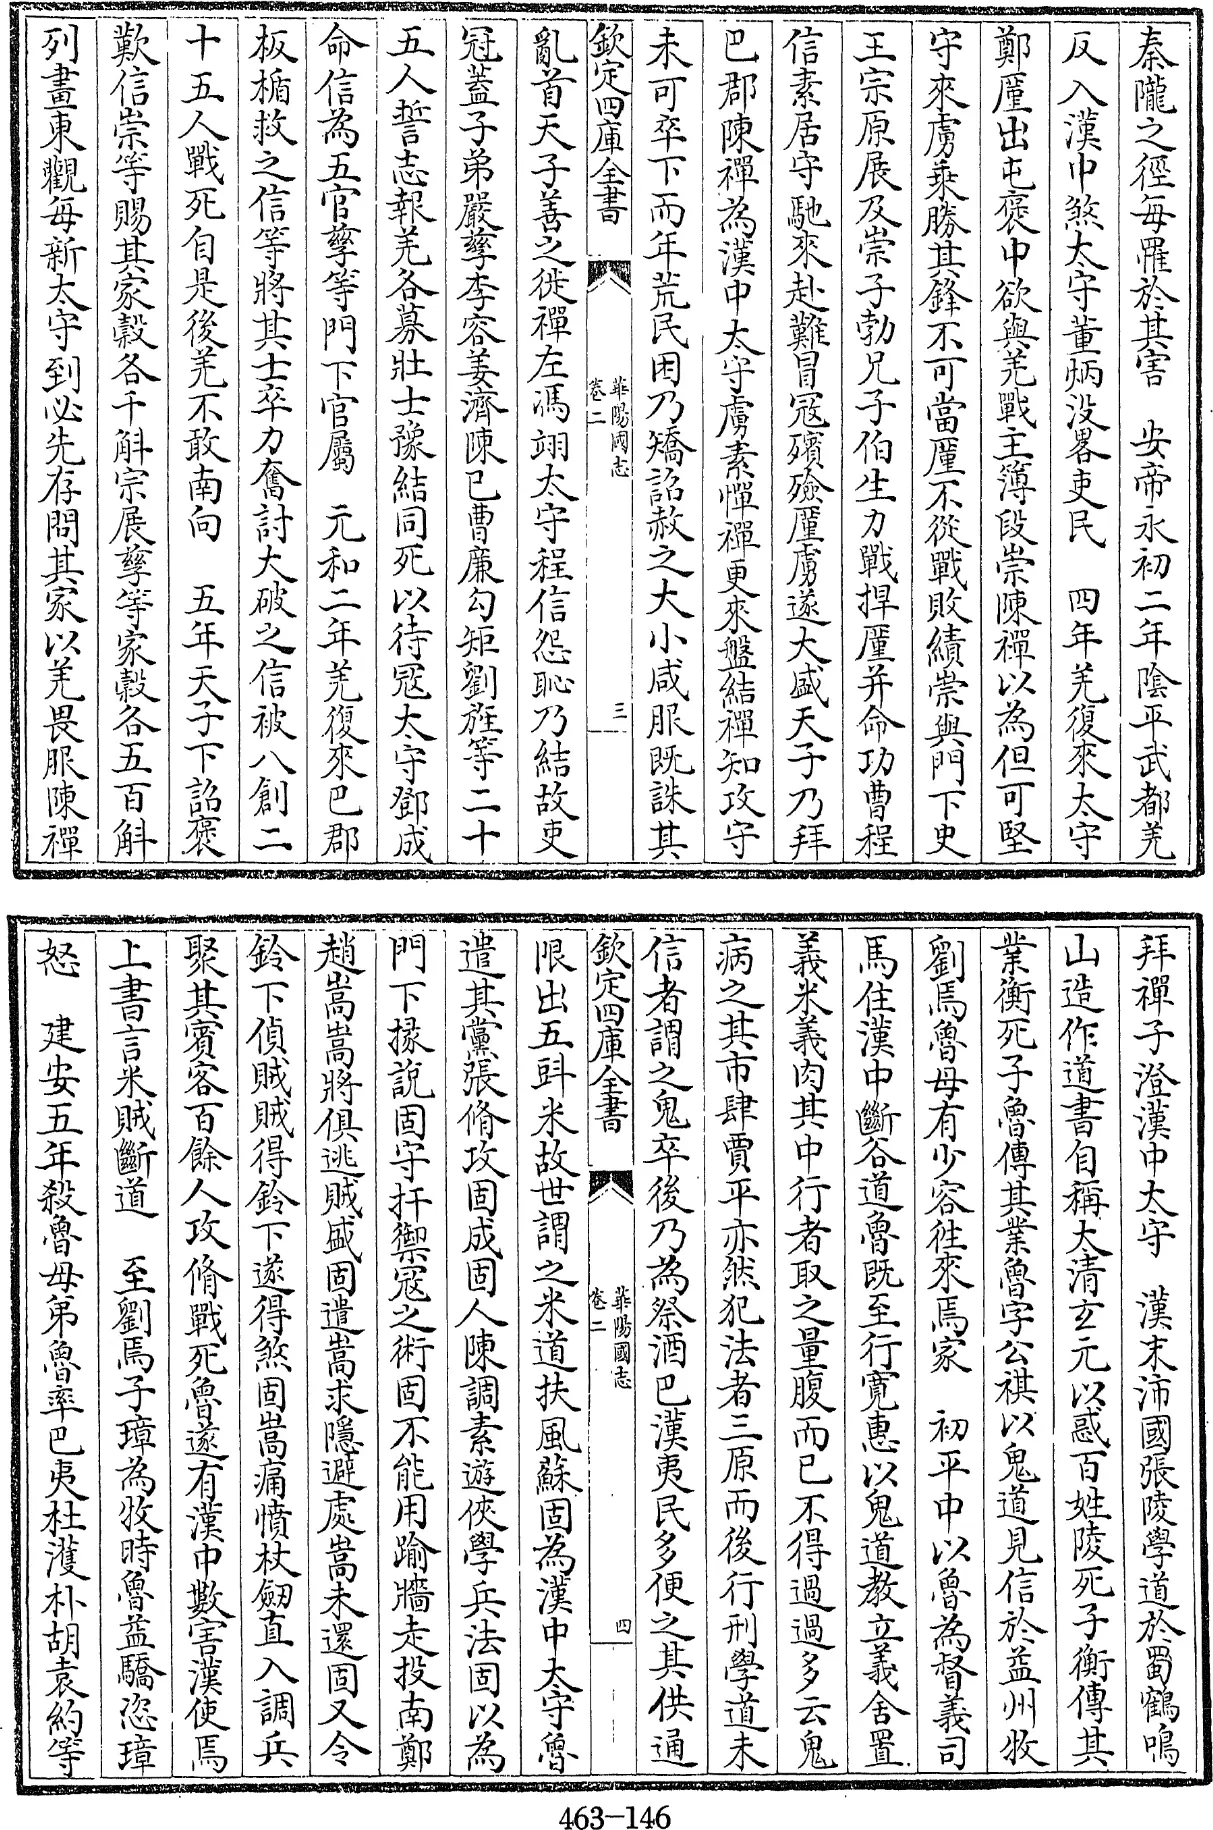 秦隴之徑每罹於其害　安帝永初二年陰平武都羌
反入漢中煞太守董炳没畧吏民　四年羌復來太守
鄭廑出屯褒中欲與羌戰主簿段崇陳禪以為但可堅
守來虜乗勝其鋒不可當廑不從戰敗績崇與門下史
王宗原展及崇子勃兄子伯生力戰捍廑并命功曹程
信素居守馳來赴難冒冦殯殮廑虜遂大盛天子乃拜
巴郡陳禪為漢中太守虜素憚禪更來盤結禪知攻守
未可卒下而年荒民困乃矯詔赦之大小咸服既誅其
欽定四庫全書
華陽國志
卷二
三
亂首天子善之徙禪左馮翊太守程信怨恥乃結故吏
冠蓋子弟嚴孳李容姜濟陳已曹廉勾矩劉旌等二十
五人誓志報羌各募壯士豫結同死以待冦太守鄧成
命信為五官孳等門下官屬　元和二年羌復來巴郡
板楯救之信等將其士卒力奮討大破之信被八創二
十五人戰死自是後羌不敢南向　五年天子下詔褒
歎信崇等賜其家穀各千斛宗展孳等家穀各五百斛
列畫東觀每新太守到必先存問其家以羌畏服陳禪
拜禪子澄漢中太守　漢末沛國張陵學道於蜀鶴鳴
山造作道書自稱大清玄元以惑百姓陵死子衡傳其
業衡死子魯傳其業魯字公祺以鬼道見信於益州牧
劉焉魯母有少容往來焉家　初平中以魯為督義司
馬住漢中斷谷道魯既至行寛惠以鬼道教立義舍置
義米義肉其中行者取之量腹而已不得過過多云鬼
病之其市肆賈平亦然犯法者三原而後行刑學道未
信者謂之鬼卒後乃為祭酒巴漢夷民多便之其供通
欽定四庫全書
華陽國志
卷二
四
限出五㪷米故世謂之米道扶風蘇固為漢中太守魯
遣其黨張脩攻固成固人陳調素遊俠學兵法固以為
門下掾說固守扞禦冦之術固不能用踰牆走投南鄭
趙嵩嵩將俱逃賊盛固遣嵩求隱避處嵩未還固又令
鈴下偵賊賊得鈴下遂得煞固嵩痛憤杖劒直入調兵
聚其賓客百餘人攻脩戰死魯遂有漢中數害漢使焉
上書言米賊斷道　至劉焉子璋為牧時魯益驕恣璋
怒　建安五年殺魯母弟魯率巴夷杜濩朴胡袁約等
463-146